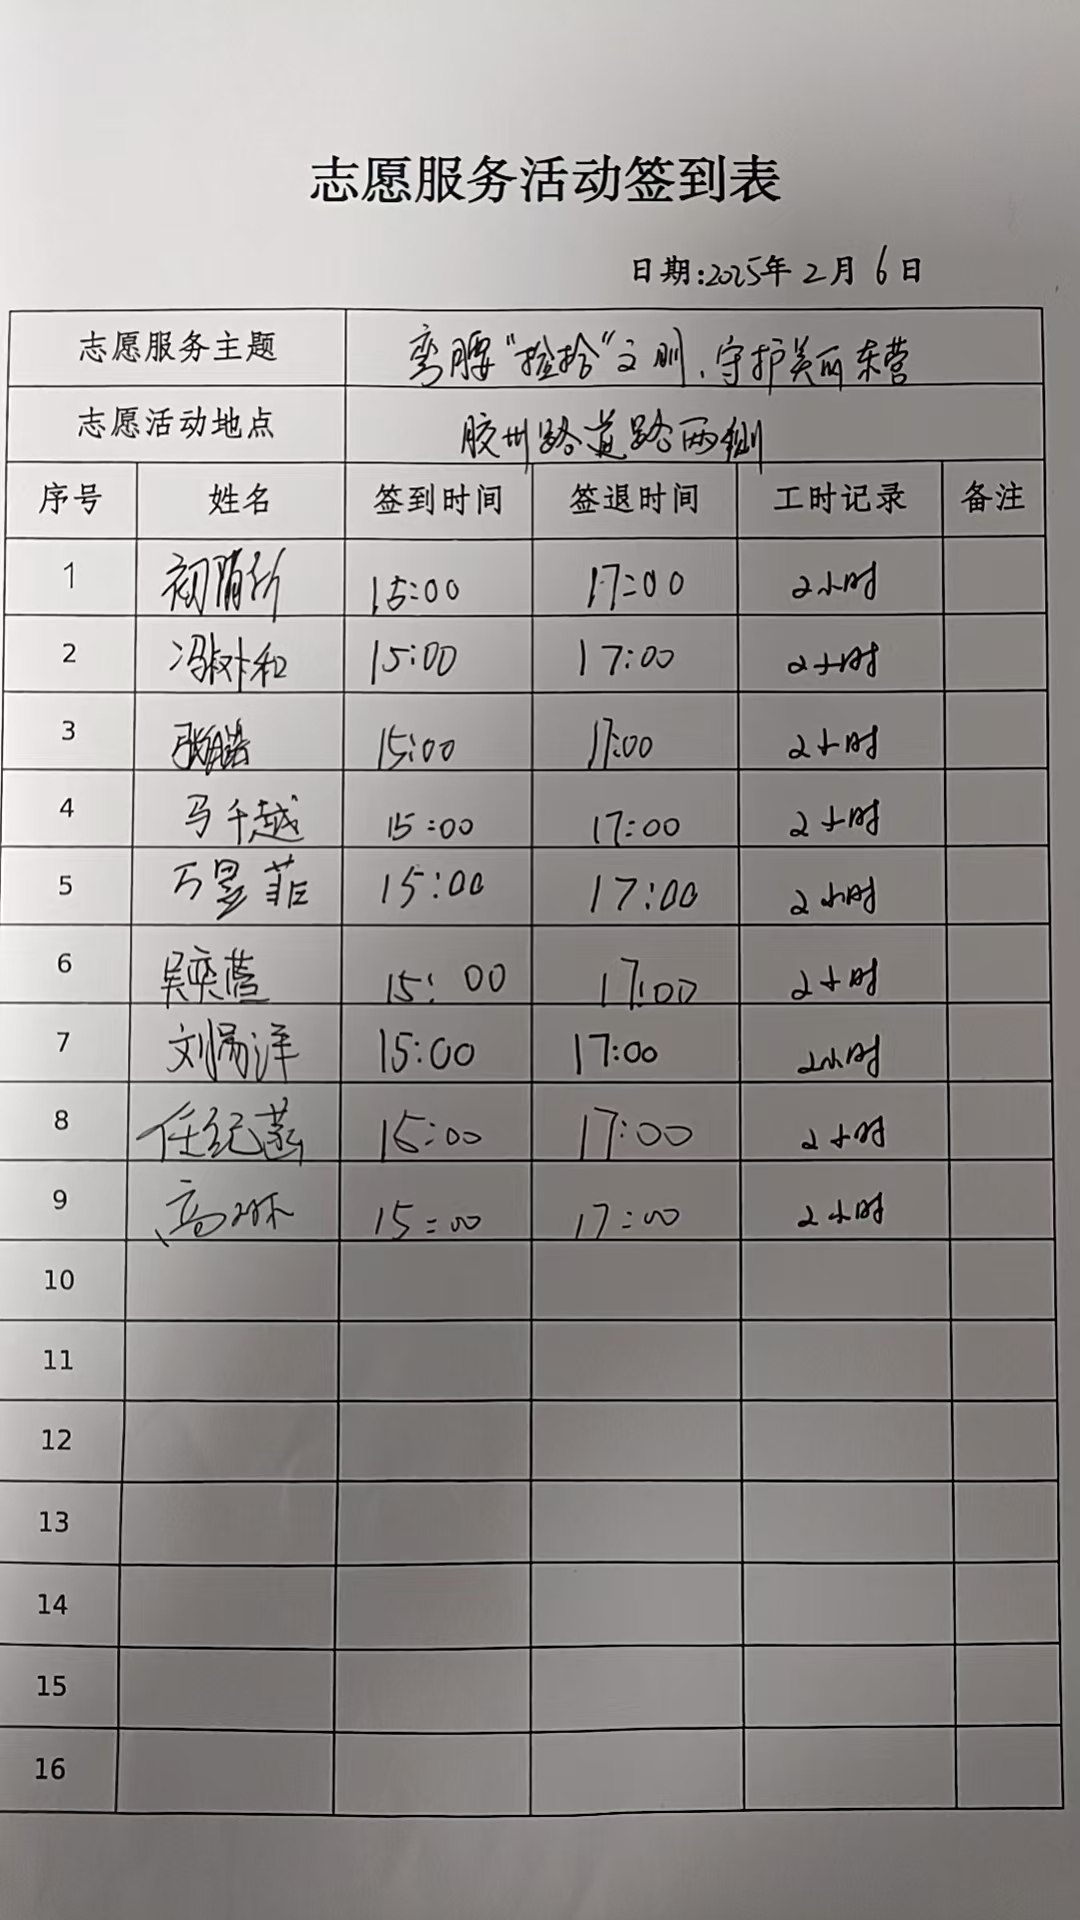 志愿服务活动签到表
日期:2025年2月6日
志愿服务主题 弯腰"捡拾"文明、守护美丽东营
志愿活动地点 胶州路道路两侧
序号 姓名 签到时间 签退时间 工时记录 备注
1 15:00 17:00 2小时
2 冯树和 15:00 17:00 2小时
3 15:00 17:00 2小时
4 马千越 15:00 17:00 2小时
5 万昱菲 15:00 17:00 2小时
6 吴奕萱 15:00 17:00 2小时
7 15:00 17:00 2小时
8 15:00 17:00 2小时
9 15:00 17:00 2小时
10
11
12
13
14
15
16